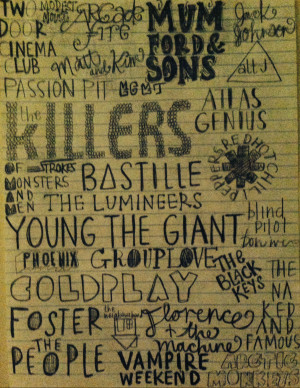 TWO
DOOR
CINEMA
CLUB
MODEST
MOUSE
ARCADE
FIRE
MUM
FORD &
SONS
Jack
Johnson
Matt
and Kim
alt J
PASSION PIT
MGMT
ATLAS
GENIUS
the
KILLERS
RED HOT CHILI PEPPERS
OF
MONSTERS
AND
MEN
THE STROKES
BASTILLE
THE LUMINEERS
YOUNG THE GIANT
blind
pilot
PHOENIX
GROUPLOVE
THE
BLACK
KEYS
THE
NA
KED
AND
FAMOUS
COLDPLAY
FOSTER
THE
PEOPLE
the
neighbourhood
florence
+ the
machine
VAMPIRE
WEEKEND
ARCTIC
MONKEYS